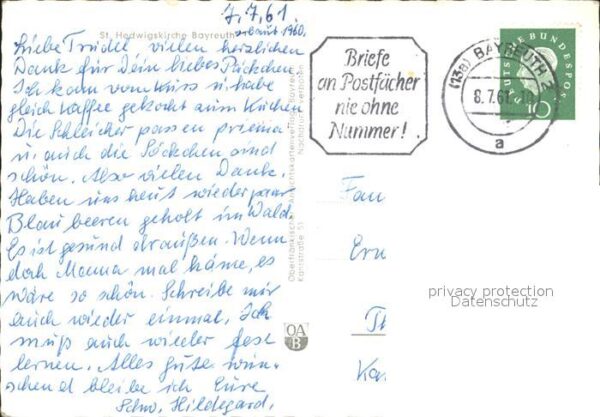 7.7.61.
St. Hedwigskirche Bayreuth erbaut 1960.
Liebe Trudel, vielen herzlichen
Dank für Dein liebes Päckchen.
Ich kam vom Kurs u. habe
gleich Kaffee gekocht zum Kuchen
Die Schleicher passen prima
u. auch die Söckchen sind
schön. Also vielen Dank.
Haben uns heut wieder paar
Blaubeeren geholt im Wald.
Es ist gesund draußen. Wenn
doch Mama mal käme, es
wäre so schön. Schreibe mir
auch wieder einmal. Ich
muß auch wieder fest
lernen. Alles gute wün-
schend bleibe ich Eure
Schw. Hildegard.
Oberfränkischer Ansichtskartenverlag Bayreuth
Kantstraße 51
Nachdruck verboten
OA
B
Briefe
an Postfächer
nie ohne
Nummer!
(13a) BAYREUTH 2
8.7.61
a
DEUTSCHE BUNDESPOST
10
Fam
Ern
Th
Kan
privacy protection
Datenschutz